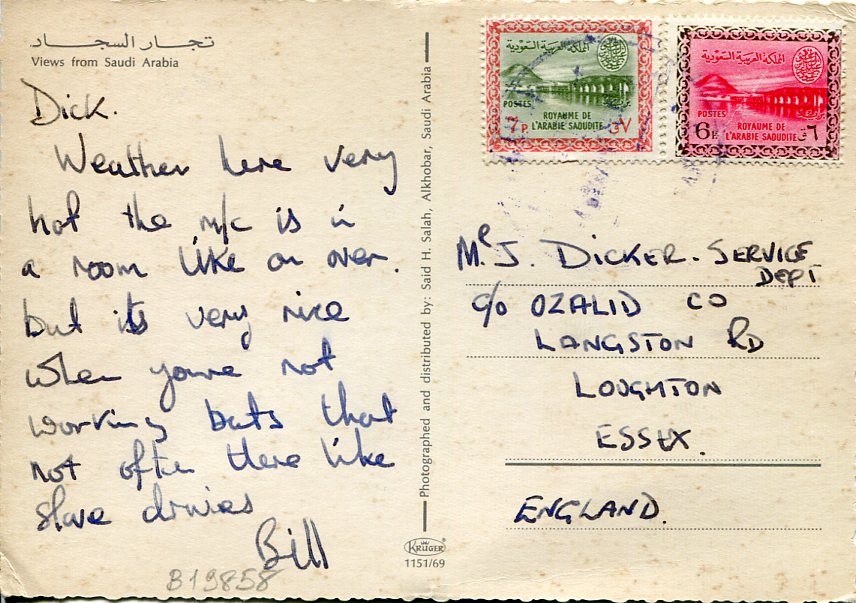 تجار السجاد
Views from Saudi Arabia
Dick.
Weather here very
hot the m/c is in
a room like an oven.
but its very nice
when youre not
working buts that
not often there like
slave drivies
Bill
B19858
Photographed and distributed by: Said H. Salah, Alkhobar, Saudi Arabia
KRÜGER
1151/69
المملكة العربية السعودية
POSTES
ROYAUME DE
7P. L'ARABIE SAOUDITE ٧
المملكة العربية السعودية
POSTES
ROYAUME DE
6P. L'ARABIE SAOUDITE ٦
Mr J. DICKER. SERVICE
DEPT
c/o OZALID CO
LANGSTON RD
LOUGHTON
ESSEX.
ENGLAND.